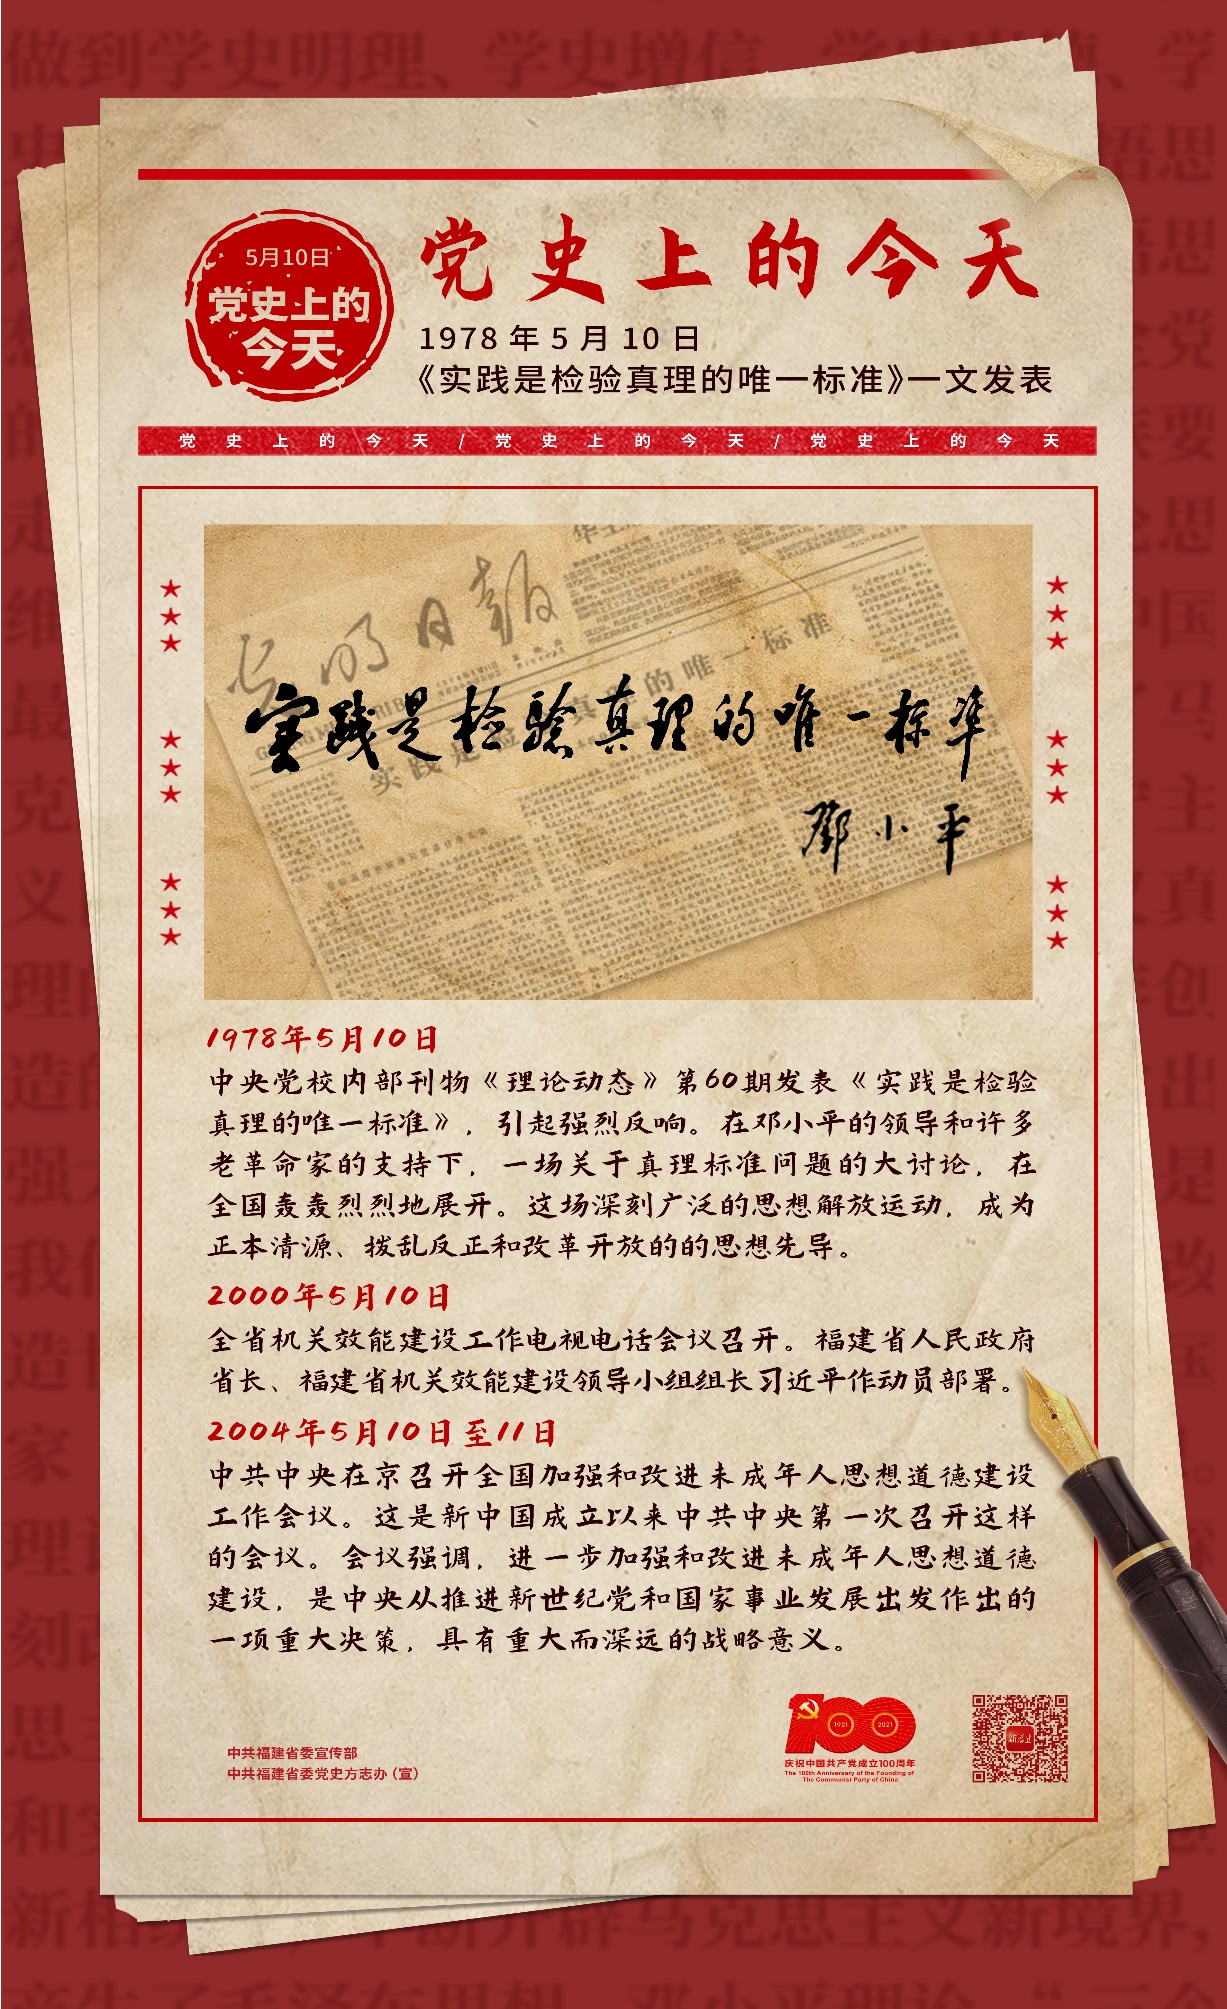 做到学史明理、学史增信
5月10日
党史上的
今天
党史上的今天
1978年5月10日
《实践是检验真理的唯一标准》一文发表
党史上的今天/党史上的今天/党史上的今天
光明日报
实践是检验真理的唯一标准
实践是检验真理的唯一标准
邓小平
1978年5月10日
中央党校内部刊物《理论动态》第60期发表《实践是检验
真理的唯一标准》，引起强烈反响。在邓小平的领导和许多
老革命家的支持下，一场关于真理标准问题的大讨论，在
全国轰轰烈烈地展开。这场深刻广泛的思想解放运动，成为
正本清源、拨乱反正和改革开放的的思想先导。
2000年5月10日
全省机关效能建设工作电视电话会议召开。福建省人民政府
省长、福建省机关效能建设领导小组组长习近平作动员部署。
2004年5月10日至11日
中共中央在京召开全国加强和改进未成年人思想道德建设
工作会议。这是新中国成立以来中共中央第一次召开这样
的会议。会议强调，进一步加强和改进未成年人思想道德
建设，是中央从推进新世纪党和国家事业发展出发作出的
一项重大决策，具有重大而深远的战略意义。
中共福建省委宣传部
中共福建省委党史方志办（宣）
100
1921
2021
庆祝中国共产党成立100周年
The 100th Anniversary of the Founding of
The Communist Party of China